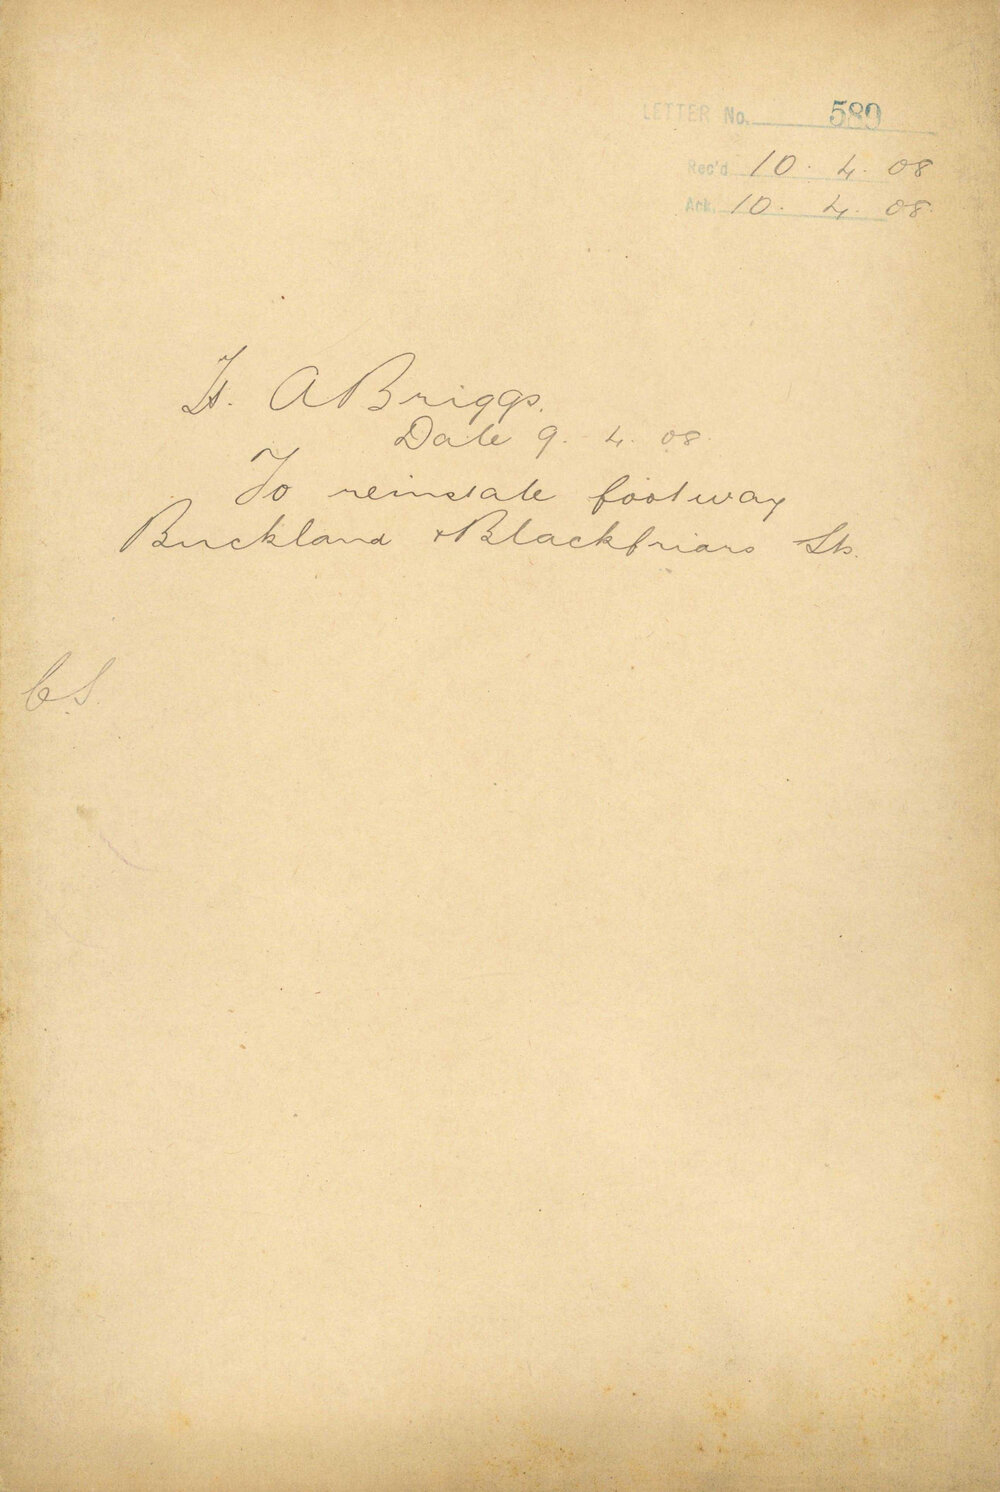 LETTER No. 589
Rec'd 10. 4. 08
Ack. 10. 4. 08.
A Briggs.
Date 9. 4. 08.
To reinstate footway
Buckland & Blackfriars Sts.
C.S.